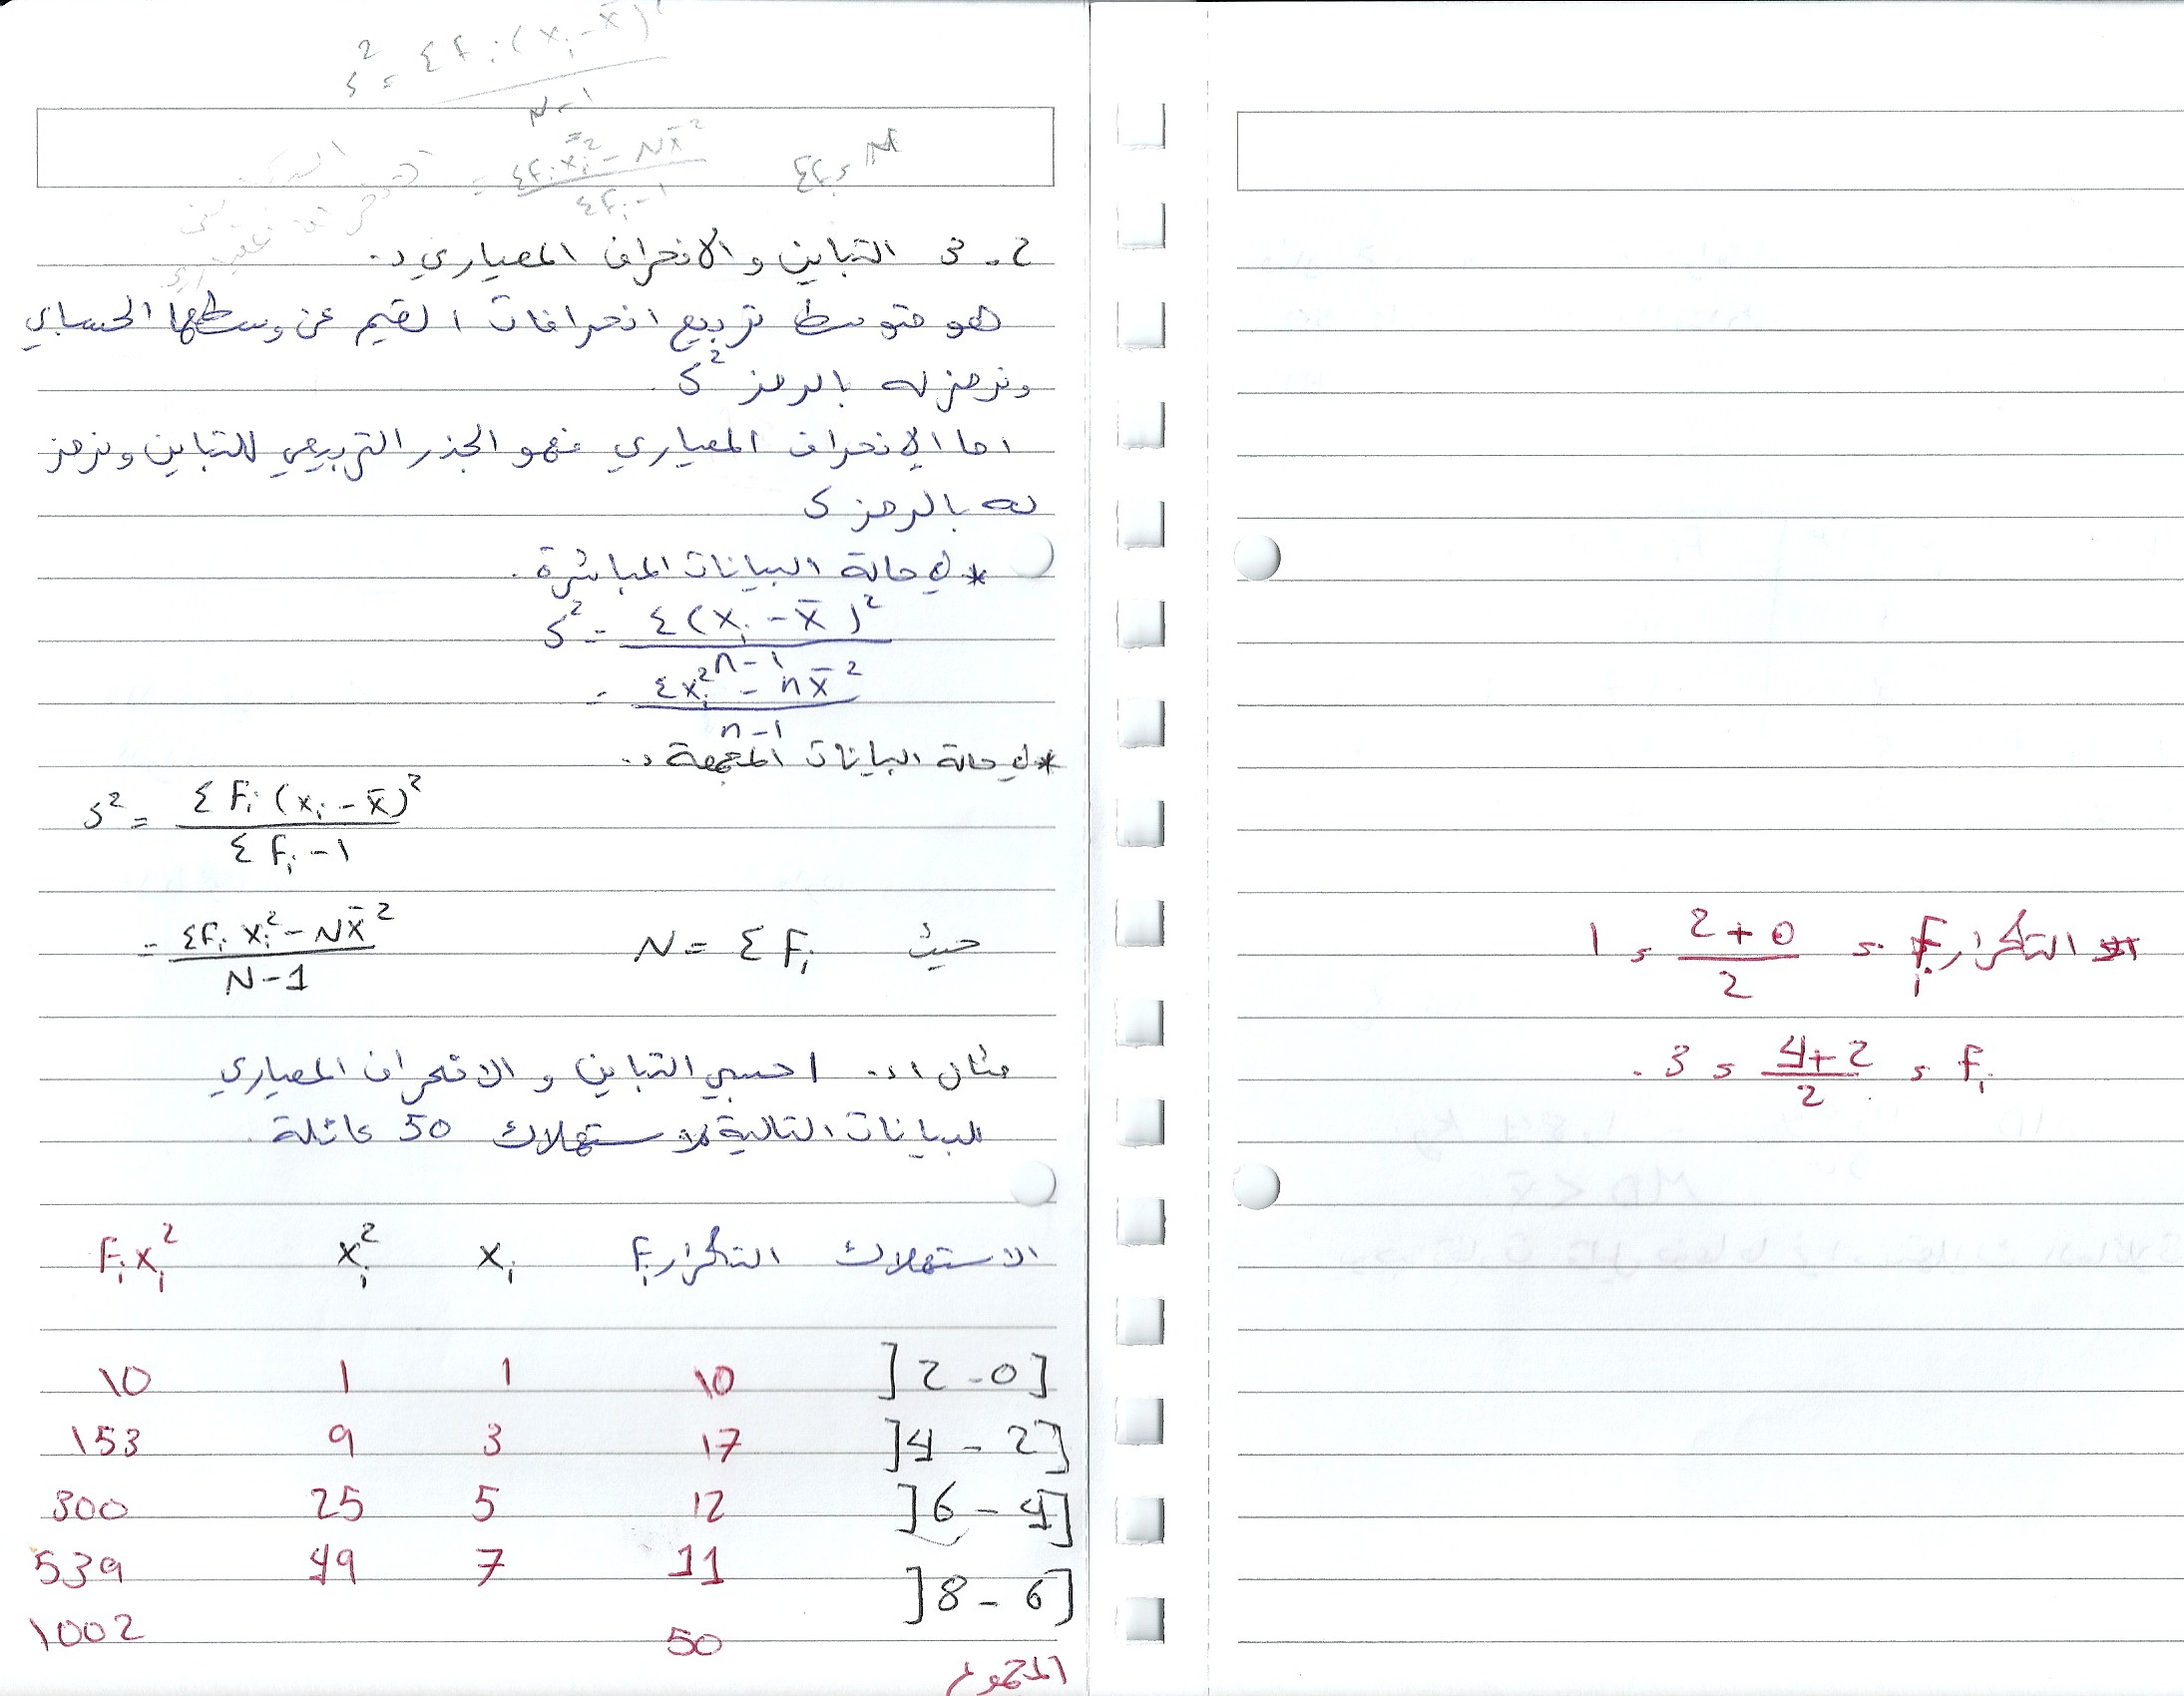 s² = Σ F i (xi - x̄)²
N-1
= ΣFi xi² - N x̄²
ΣFi -1
ΣFi = N
2 - 3 التباين والانحراف المعياري :-
هو متوسط تربيع انحرافات القيم عن وسطها الحسابي
ونرمز له بالرمز S²
اما الانحراف المعياري فهو الجذر التربيعي للتباين ونرمز
له بالرمز S
* في حالة البيانات المباشرة .
S² = Σ(xi - x̄)²
n-1
= Σxi² - n x̄²
n-1
* في حالة البيانات المتجمعة :-
S² = Σ Fi (xi - x̄)²
Σ Fi -1
= ΣFi xi² - N x̄²
N-1
حيث N = Σ Fi
مثال 1 :- احسبي التباين والانحراف المعياري
للبيانات التالية لاستهلاك 50 عائلة .
الاستهلاك التكرار Fi xi xi² Fi xi²
[0 - 2] 10 1 1 10
[2 - 4] 17 3 9 153
[4 - 6] 12 5 25 300
[6 - 8] 11 7 49 539
المجموع 50 1002
* التكرار Fi = 2+0 = 1
2
Fi = 4+2 = 3 .
2